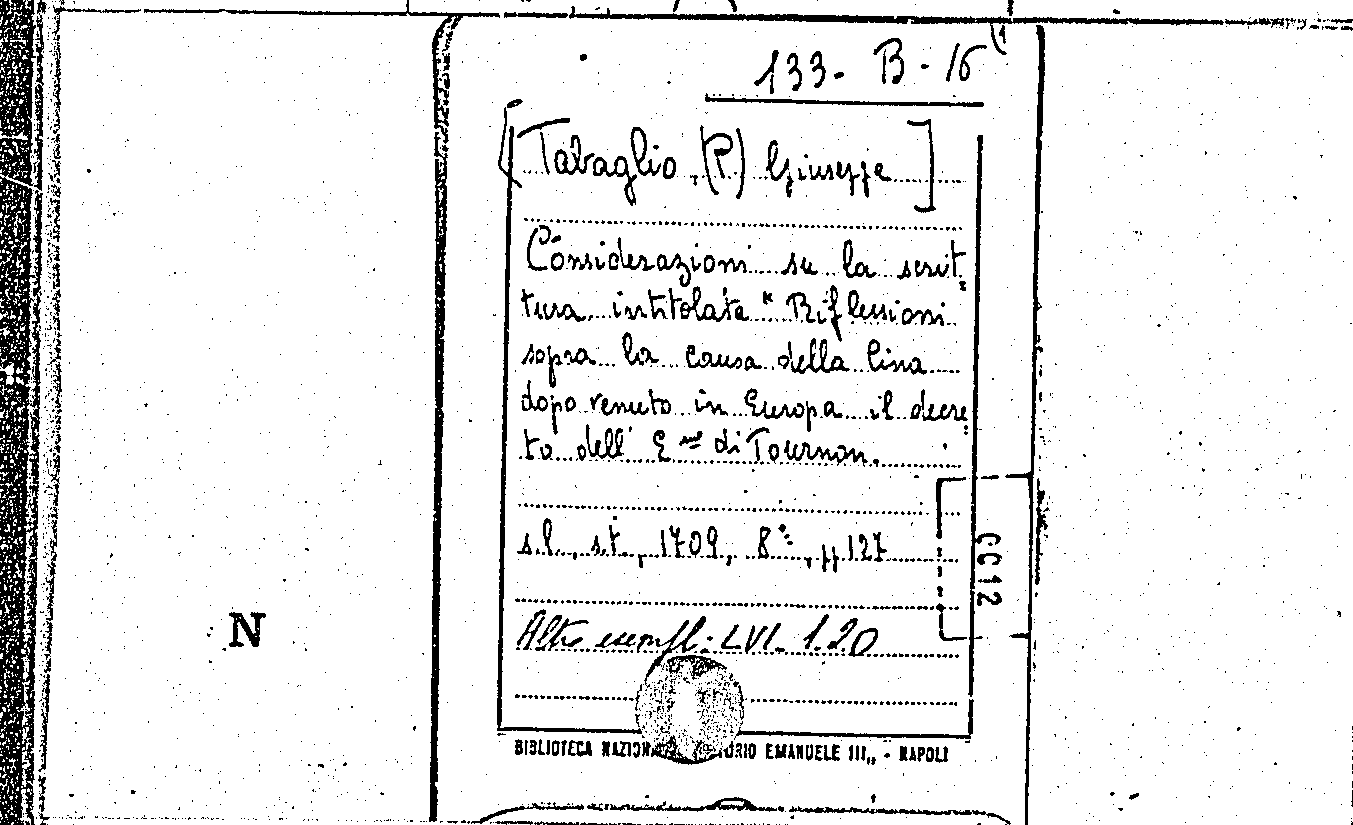 133 - B - 16 (1
[Tabaglio, (P) Giuseppe]
Considerazioni su la scrit=
tura intitolata "Riflessioni
sopra la causa della Cina
dopo venuto in Europa il decre=
to dell' E.mo di Tournon.
s.l., s.t., 1709, 8°, pp 127
CC12
N
Altro esempl: LVI. 1.20
BIBLIOTECA EMANUELE III,, - NAPOLI